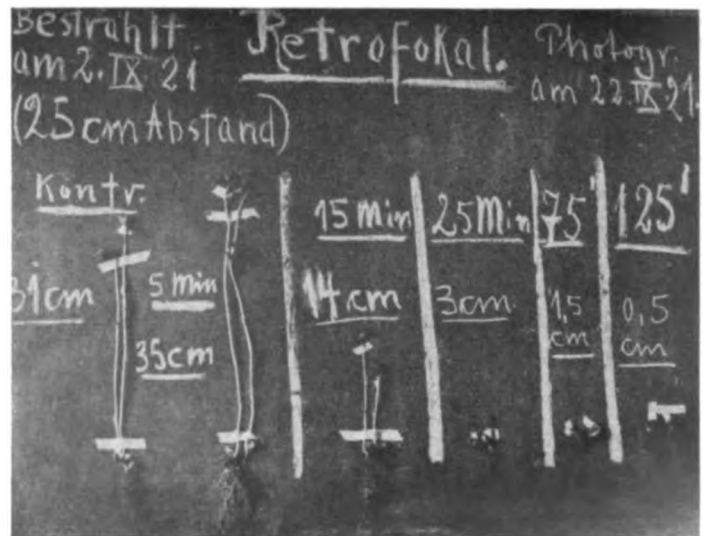 Bestrahlt
am 2. IX 21
(25 cm Abstand)
Retrofokal.
Photogr.
am 22. IX 21.
Kontr.
31 cm
5 min
35 cm
15 Min
14 cm
25 Min
3 cm
75'
1,5
cm
125'
0,5
cm